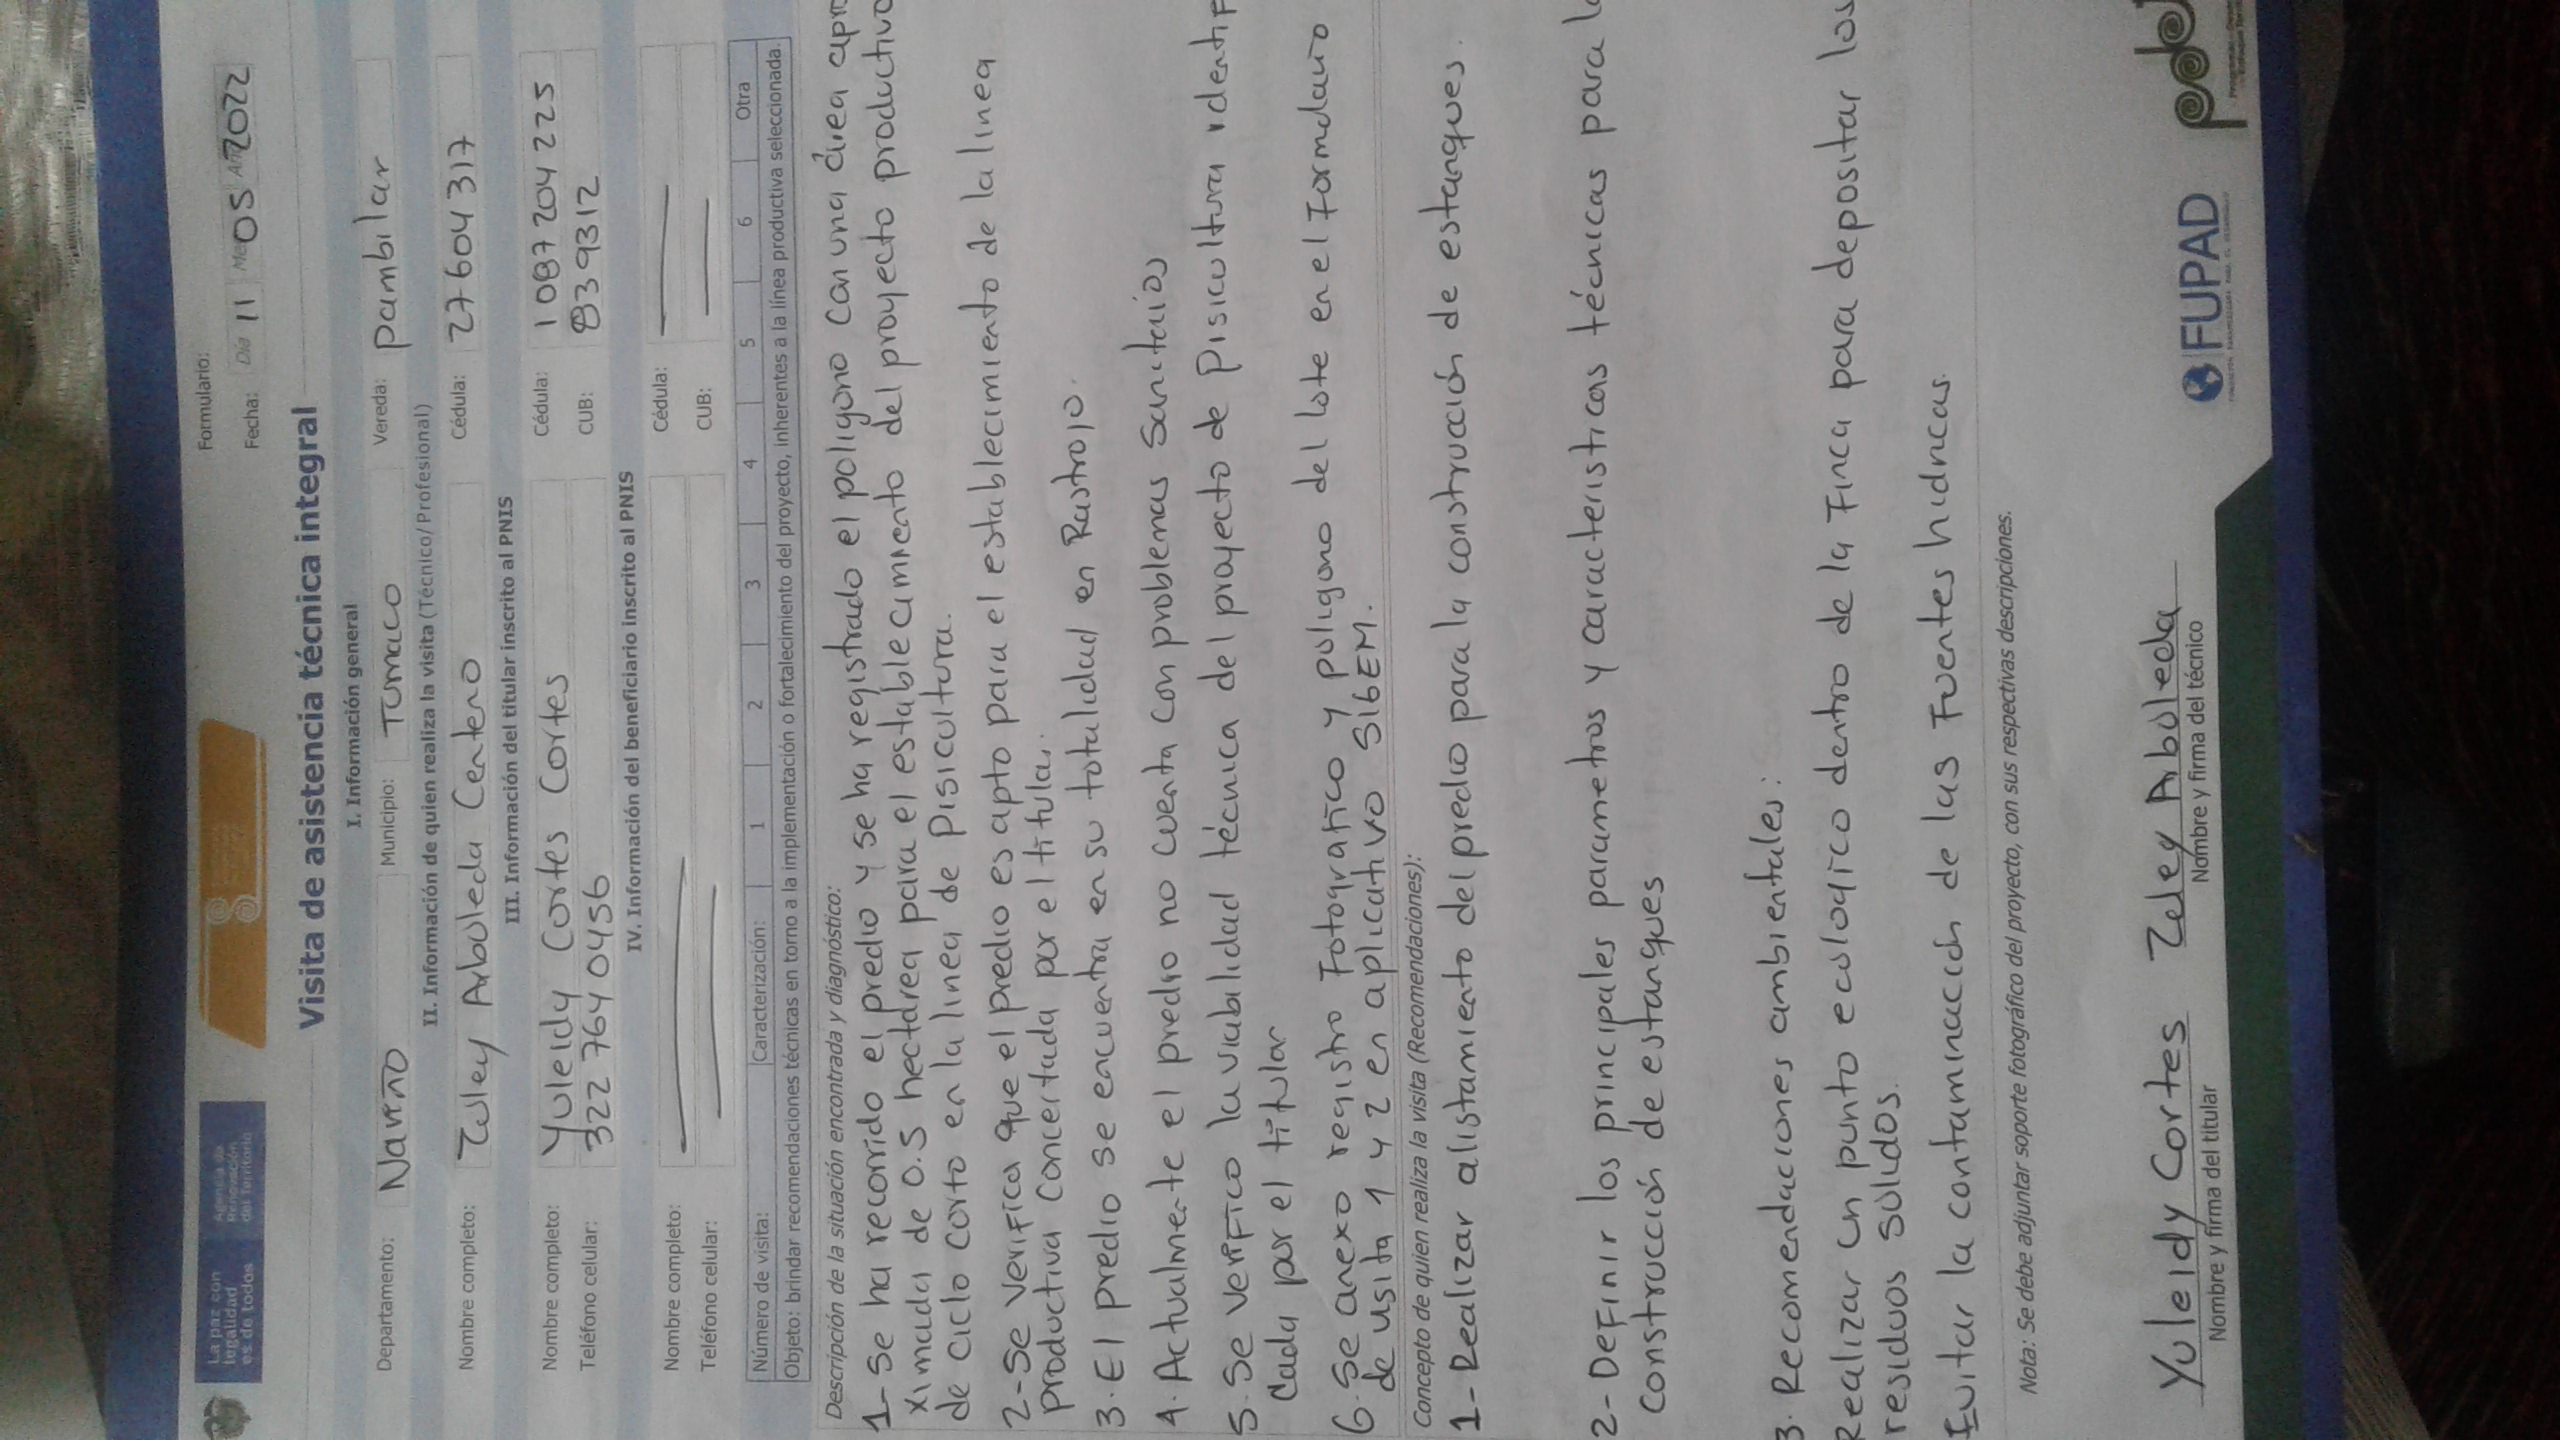 La paz con
legalidad
es de todos
Agencia de
Renovación
del Territorio
Formulario:
Fecha: Día 11 Mes 05 Año 2022
Visita de asistencia técnica integral
I. Información general
Departamento: Nariño Municipio: Tumaco Vereda: pambilar
II. Información de quien realiza la visita (Técnico/Profesional)
Nombre completo: Zuley Arboleda Centeno Cédula: 27604317
III. Información del titular inscrito al PNIS
Nombre completo: Yuleidy Cortes Cortes Cédula: 1087204225
Teléfono celular: 3227640456 CUB: 8339312
IV. Información del beneficiario inscrito al PNIS
Nombre completo: Cédula:
Teléfono celular: CUB:
Número de visita: Caracterización: 1 2 3 4 5 6 Otra
Objeto: brindar recomendaciones técnicas en torno a la implementación o fortalecimiento del proyecto, inherentes a la línea productiva seleccionada.
Descripción de la situación encontrada y diagnóstico:
1-Se ha recorrido el predio y se ha registrado el poligono con una área apro
ximada de 0.5 hectarea para el establecimiento del proyecto productivo
de ciclo corto en la linea de Pisicultura.
2-Se Verifica que el predio es apto para el establecimiento de la linea
productiva concertada por el titular.
3. El predio se encuentra en su totalidad en Rastrojo.
4. Actualmente el predio no cuenta con problemas Sanitarios
5. Se Verifico la viabilidad técnica del proyecto de Pisicultura identif
cada por el titular
6. Se anexo registro Fotografico y poligono del lote en el Formulario
de visita 1 y 2 en aplicativo SIGEM.
Concepto de quien realiza la visita (Recomendaciones):
1-Realizar alistamiento del predio para la construcción de estanques.
2-Definir los principales parametros y caracteristicas técnicas para la
construcción de estanques
3. Recomendaciones ambientales:
Realizar un punto ecologico dentro de la Finca para depositar los
residuos solidos.
Evitar la contaminación de las Fuentes hidricas.
Nota: Se debe adjuntar soporte fotográfico del proyecto, con sus respectivas descripciones.
Yuleidy Cortes Zuley Arboleda
Nombre y firma del titular Nombre y firma del técnico
FUPAD